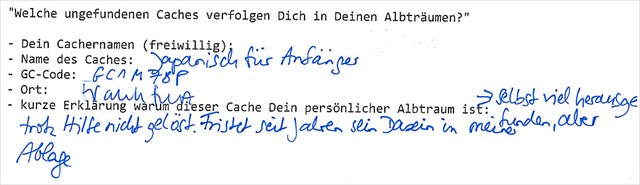 "Welche ungefundenen Caches verfolgen Dich in Deinen Albträumen?"
- Dein Cachernamen (freiwillig):
- Name des Caches: Japanisch für Anfänger
- GC-Code: GC1M78P
- Ort: Frankfurt
- kurze Erklärung warum dieser Cache Dein persönlicher Albtraum ist: → selbst viel herausge
trotz Hilfe nicht gelöst. Fristet seit Jahren sein Dasein in meiner funden, aber
Ablage